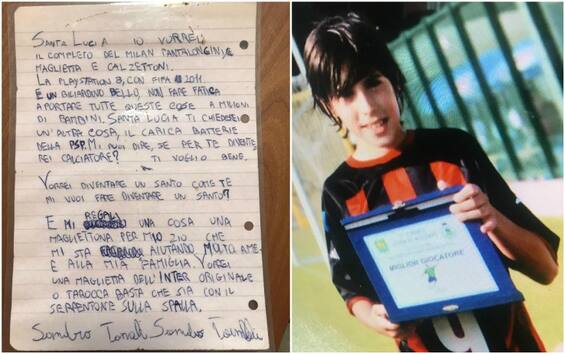 SANTA LUCIA IO VORREI
IL COMPLETO DEL MILAN PANTALONCINI,
MAGLIETTA E CALZETTONI.
LA PLAYSTATION 3, CON FIFA 2011
E UN BILIARDINO BELLO, NON FARE FATICA
A PORTARE TUTTE QUESTE COSE A MILIONI
DI BAMBINI. SANTA LUCIA TI CHIEDEREI
UN'ALTRA COSA, IL CARICA BATTERIE
DELLA PSP. MI PUOI DIRE, SE PER TE DIVENTE
REI CALCIATORE? TI VOGLIO BENE.
VORREI DIVENTARE UN SANTO COME TE
MI VUOI FARE DIVENTARE UN SANTO?
E MI REGALI UNA COSA UNA
MAGLIETTONA PER MIO ZIO CHE
MI STA AIUTANDO MOLTO A ME
E ALLA MIA FAMIGLIA, VORREI
UNA MAGLIETTA DELL'INTER ORIGINALE
O TAROCCA BASTA CHE SIA CON IL
SERPENTONE SULLA SPALLA.
Sandro Tonali Sandro Tonali
MIGLIOR GIOCATORE